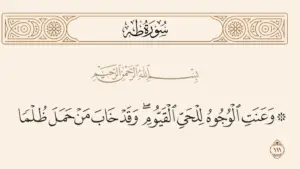 سُورَةُ طه
بِسْمِ اللَّهِ الرَّحْمَٰنِ الرَّحِيمِ
۞ وَعَنَتِ ٱلْوُجُوهُ لِلْحَىِّ ٱلْقَيُّومِ ۖ وَقَدْ خَابَ مَنْ حَمَلَ ظُلْمًا
١١١